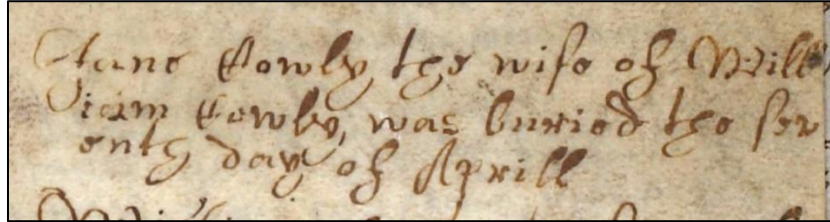 Jane Cowly the wife of Will
iam Cowly, was buried the sev
enth day of Aprill